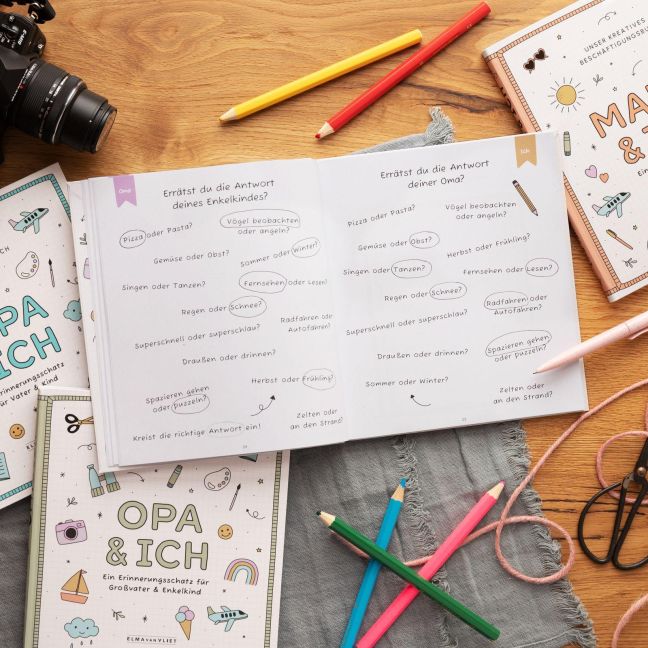 Oma
Errätst du die Antwort
deines Enkelkindes?
Pizza oder Pasta?
Vögel beobachten
oder angeln?
Gemüse oder Obst?
Sommer oder Winter?
Singen oder Tanzen?
Fernsehen oder Lesen?
Regen oder Schnee?
Radfahren oder
Autofahren?
Superschnell oder superschlau?
Draußen oder drinnen?
Spazieren gehen
oder puzzeln?
Herbst oder Frühling?
Zelten oder
an den Strand?
Kreist die richtige Antwort ein!
Ich
Errätst du die Antwort
deiner Oma?
Pizza oder Pasta?
Vögel beobachten
oder angeln?
Gemüse oder Obst?
Herbst oder Frühling?
Singen oder Tanzen?
Fernsehen oder Lesen?
Regen oder Schnee?
Radfahren oder
Autofahren?
Superschnell oder superschlau?
Draußen oder drinnen?
Spazieren gehen
oder puzzeln?
Sommer oder Winter?
Zelten oder
an den Strand?
UNSER KREATIVES
BESCHÄFTIGUNGSBU
MA
&
Ein
ICH
PA
& ICH
Erinnerungsschatz
für Vater & Kind
ELMA
OPA
& ICH
Ein Erinnerungsschatz für
Großvater & Enkelkind
ELMA VAN VLIET